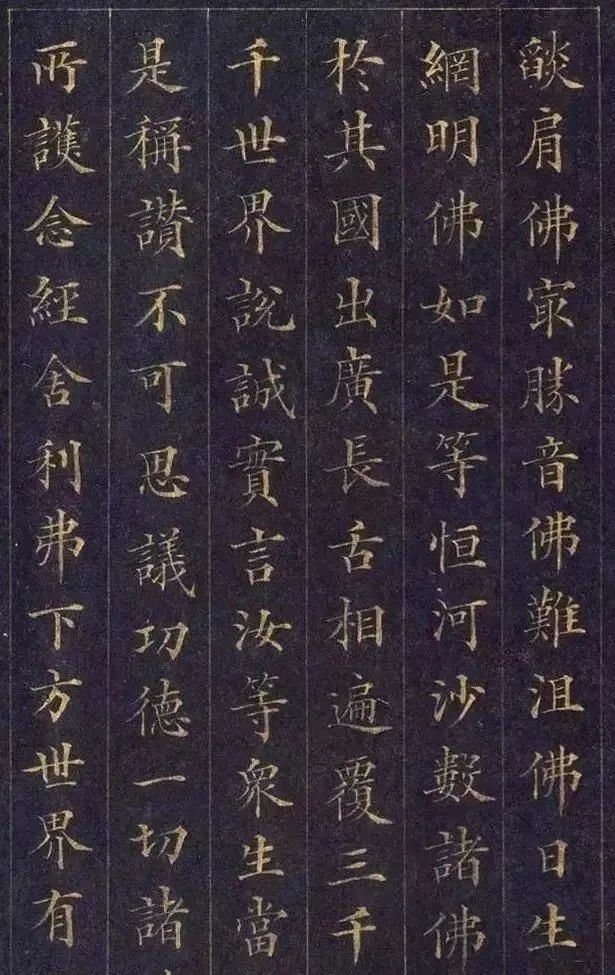 燄肩佛冣勝音佛難沮佛日生
網明佛如是等恒河沙數諸佛
於其國出廣長舌相遍覆三千
千世界說誠實言汝等衆生當
是稱讃不可思議功德一切諸
所護念經舍利弗下方世界有